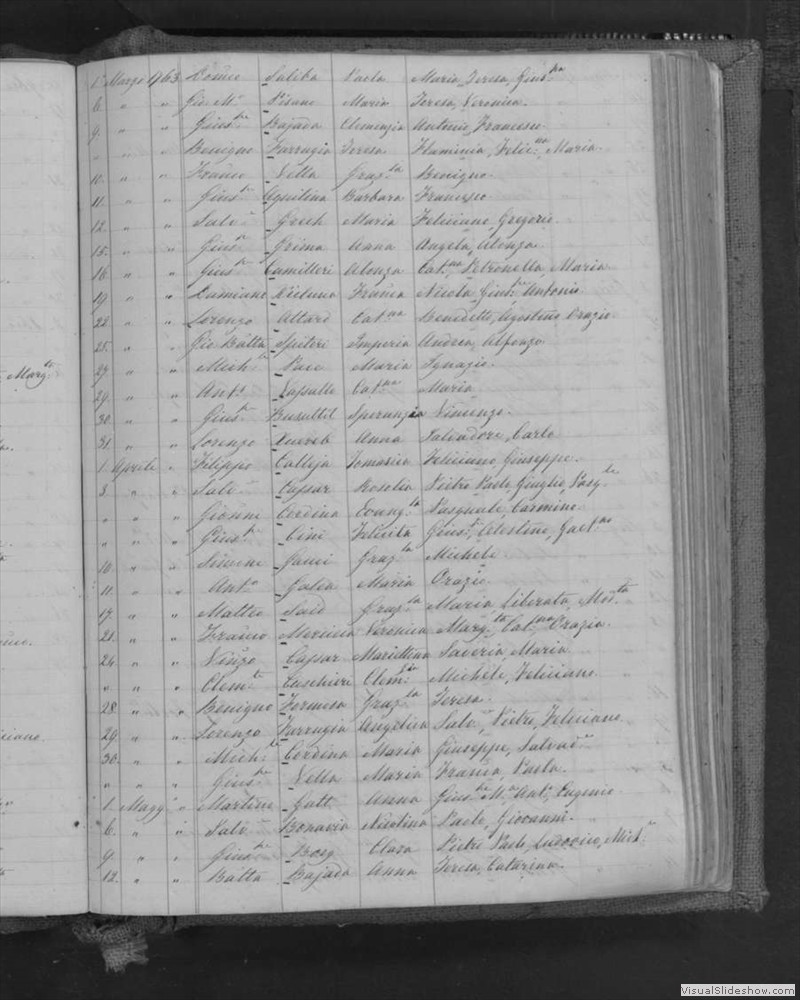 1. Marzo 1763 Saliba Paola Maria, Teresa, Gius.
6. " " Gio M. Pisano Maria Teresa, Veronica.
9. " " Gius. Bajada Clemenzia Antonio, Francesco
" " " Benigno Farrugia Teresa Flaminia, Felic.na Maria.
10. " " Franco Vella Graz.la Benigno
11. " " Gius. Aquilina Barbara Francesco
12. " " Salv. Grech Maria Feliciano, Gregorio.
15. " " Gius. Grima Anna Angela, Alonza.
16. " " Gius. Camilleri Alonza Cat.na Petronella, Maria
19. " " Damiano Franca Nicola, Gius. Antonio
22. " " Lorenzo Attard Cat.na Benedetto, Agostino, Orazio
25. " " Gio Batta Spiteri Imperia Andrea, Alfonzo.
29. " " Mich. Pace Maria Ignazio.
29. " " Ant. Cat.na Maria
30. " " Gius. Busuttil Speranzia Vincenzo.
31. " " Lorenzo Xuereb Anna Salvadore, Carlo
1. Aprile " Filippo Calleja Tomasica Feliciano, Giuseppe.
3. " " Salv. Cassar Rosolea Pietro Paolo, Giuglio, Pasq.le
" " " Cordina Pasquale, Carmino.
" " " Gius. Cini Felicita Gius. Celestino, Gaet.no
10. " " Simone Gauci Graz.la Michele
11. " " Ant. Galea Maria Orazio.
17. " " Matteo Said Graz.la Maria, Liberata,
21. " " Franco Veronica Marg.ta Cat.na Orazia.
24. " " Cassar Mariettina Saveria, Maria
" " " Clem. Cuschieri Clem. Michele, Feliciano
28. " " Benigno Formosa Graz.la Teresa.
29. " " Lorenzo Farrugia Angelica Salv. Pietro, Feliciano
30. " " Mich. Cordina Maria Giuseppe, Salvad.
" " " Gius. Vella Maria Franca, Paola.
1. Magg " Martino Gatt Anna Gius. M. Ant. Eugenio
6. " " Salv. Bonavia Nicolina Paolo, Giovanni.
9. " " Gius. Clara Pietro Paolo, Ludovico, Mich.
12. " " Batta Bajada Anna Teresa, Catarina.
Marg.ta
VisualSlideshow.com